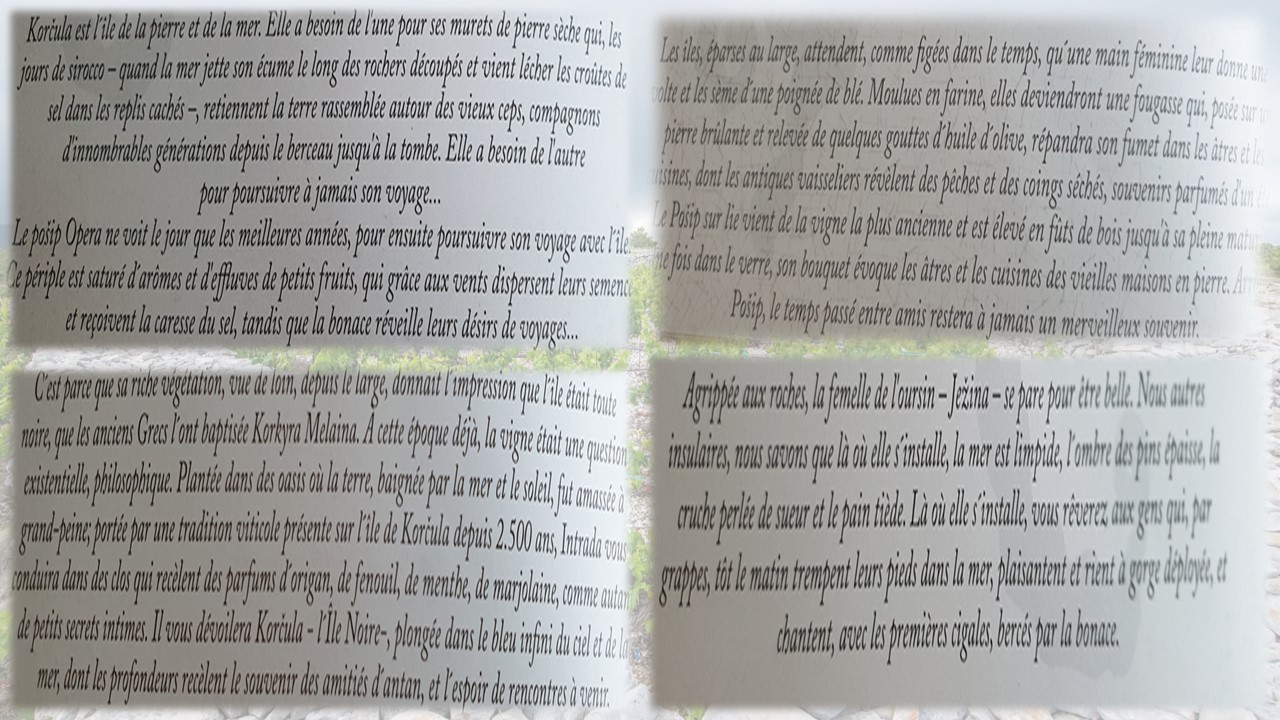 Korčula est l'île de la pierre et de la mer. Elle a besoin de l'une pour ses murets de pierre sèche qui, les
jours de sirocco – quand la mer jette son écume le long des rochers découpés et vient lécher les croûtes de
sel dans les replis cachés –, retiennent la terre rassemblée autour des vieux ceps, compagnons
d'innombrables générations depuis le berceau jusqu'à la tombe. Elle a besoin de l'autre
pour poursuivre à jamais son voyage...
Le pošip Opera ne voit le jour que les meilleures années, pour ensuite poursuivre son voyage avec l'île.
Ce périple est saturé d'arômes et d'effluves de petits fruits, qui grâce aux vents dispersent leurs
et reçoivent la caresse du sel, tandis que la bonace réveille leurs désirs de voyages...
Les îles, éparses au large, attendent, comme figées dans le temps, qu'une main féminine leur donne une
et les sème d'une poignée de blé. Moulues en farine, elles deviendront une fougasse qui, posée sur
pierre brûlante et relevée de quelques gouttes d'huile d'olive, répandra son fumet dans les âtres et les
dont les antiques vaisseliers révèlent des pêches et des coings séchés, souvenirs parfumés d'un
Le Pošip sur lie vient de la vigne la plus ancienne et est élevé en fûts de bois jusqu'à sa pleine
fois dans le verre, son bouquet évoque les âtres et les cuisines des vieilles maisons en pierre.
Pošip, le temps passé entre amis restera à jamais un merveilleux souvenir.
C'est parce que sa riche végétation, vue de loin, depuis le large, donnait l'impression que l'île était toute
noire, que les anciens Grecs l'ont baptisée Korkyra Melaina. À cette époque déjà, la vigne était une question
existentielle, philosophique. Plantée dans des oasis où la terre, baignée par la mer et le soleil, fut amassée à
grand-peine; portée par une tradition viticole présente sur l'île de Korčula depuis 2.500 ans, Intrada vous
dans des clos qui recèlent des parfums d'origan, de fenouil, de menthe, de marjolaine, comme
de petits secrets intimes. Il vous dévoilera Korčula – l'Île Noire–, plongée dans le bleu infini du ciel et de la
mer, dont les profondeurs recèlent le souvenir des amitiés d'antan, et l'espoir de rencontres à venir.
Agrippée aux roches, la femelle de l'oursin – Ježina – se pare pour être belle. Nous autres
insulaires, nous savons que là où elle s'installe, la mer est limpide, l'ombre des pins épaisse, la
cruche perlée de sueur et le pain tiède. Là où elle s'installe, vous rêverez aux gens qui, par
grappes, tôt le matin trempent leurs pieds dans la mer, plaisantent et rient à gorge déployée, et
chantent, avec les premières cigales, bercés par la bonace.